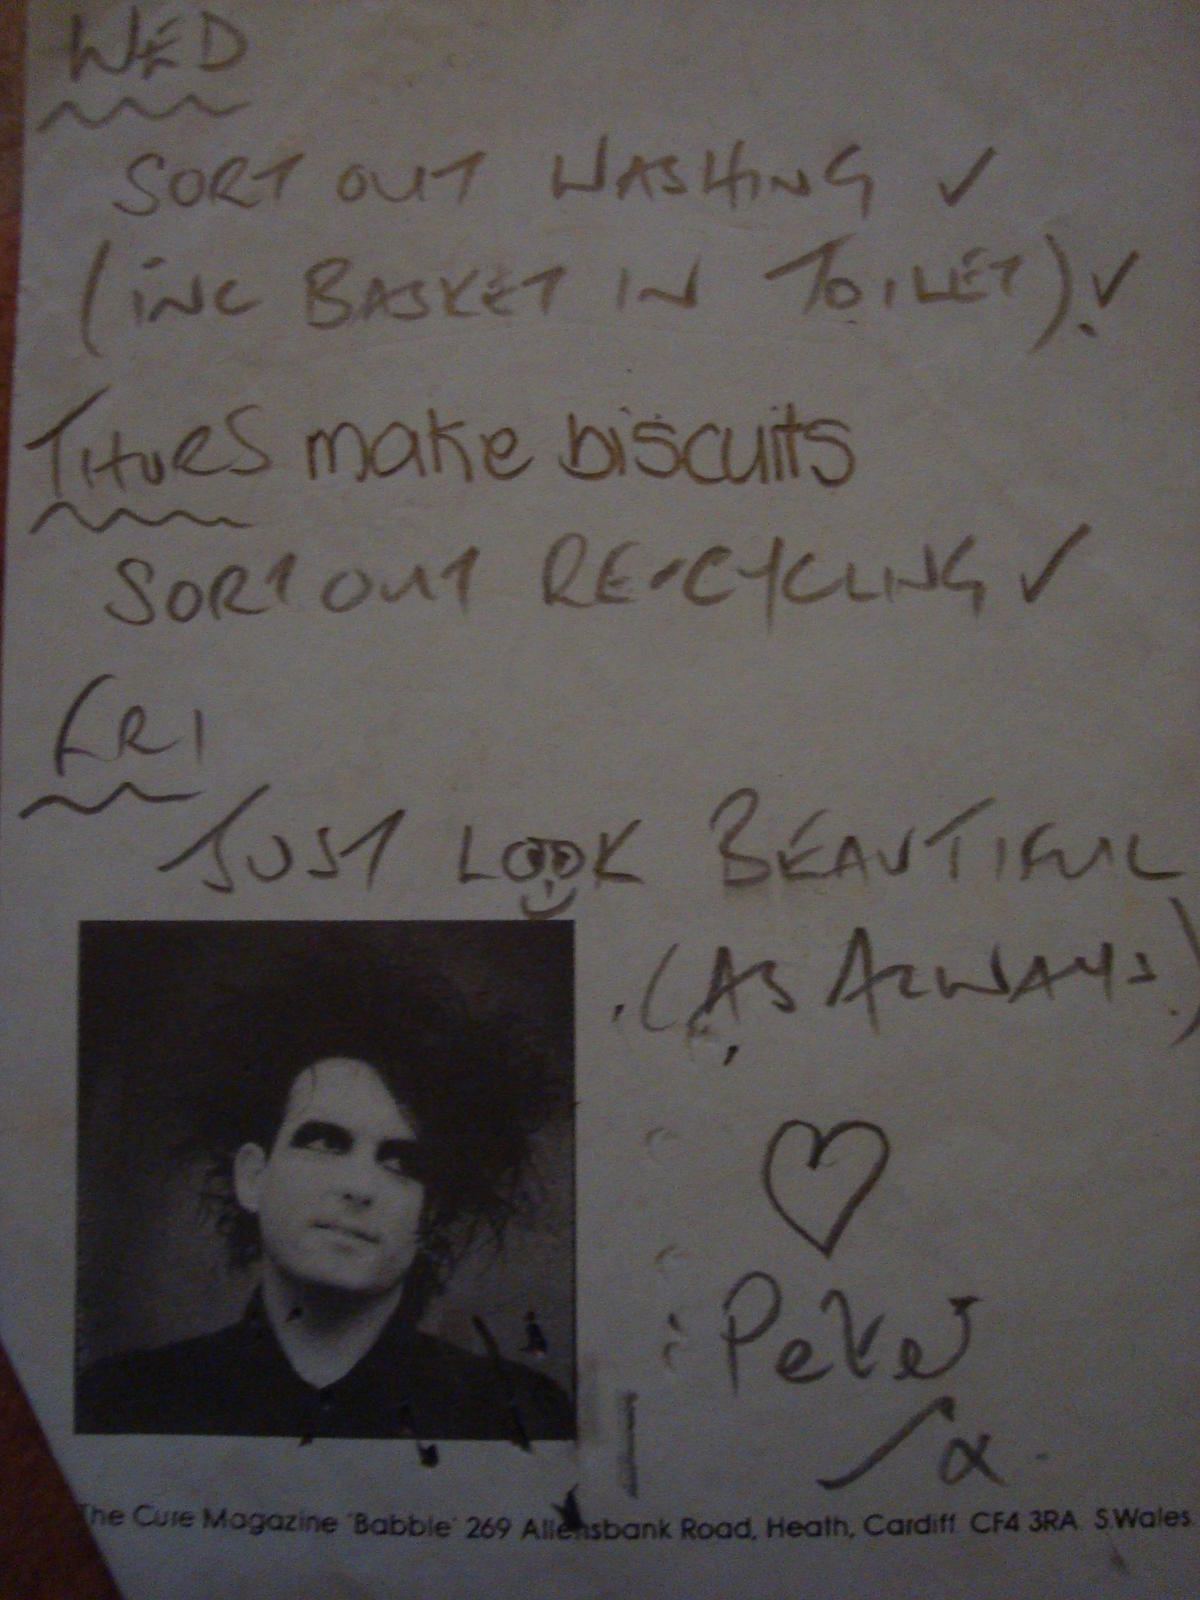 WED
SORT OUT WASHING ✓
(INC BASKET IN TOILET) ✓
THURS make biscuits
SORT OUT RE-CYCLING ✓
FRI
JUST LOOK BEAUTIFUL
(AS ALWAYS)
Peter
x
The Cure Magazine 'Babble' 269 Allensbank Road, Heath, Cardiff CF4 3RA S.Wales